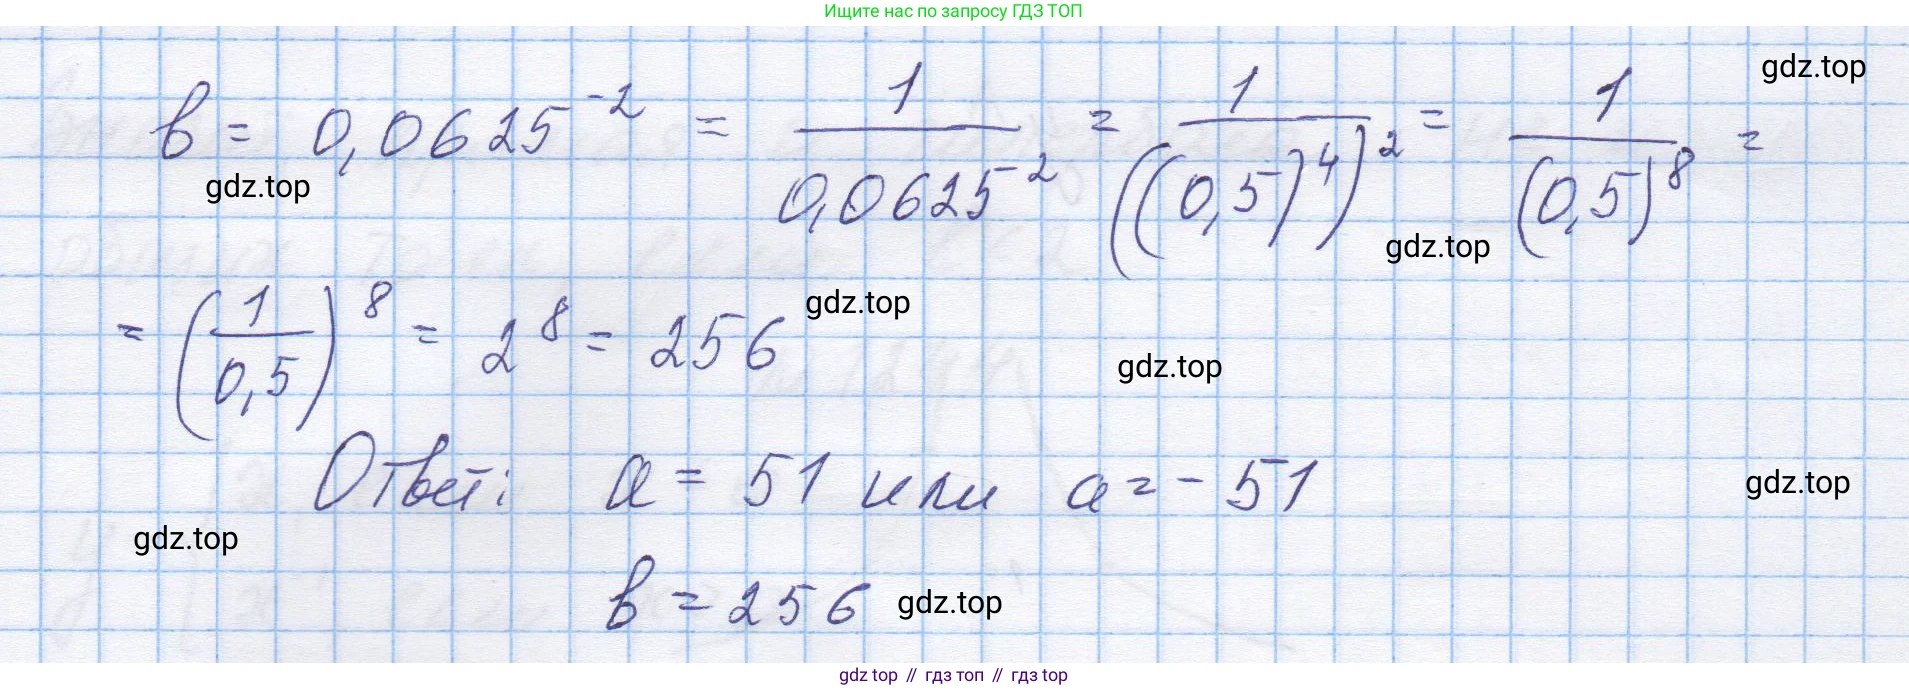 Ищите нас по запросу ГДЗ ТОП
gdz.top
в = 0,0625^-2 = 1/0,0625^2 = 1/((0,5)^4)^2 = 1/(0,5)^8 =
gdz.top
gdz.top
= (1/0,5)^8 = 2^8 = 256
gdz.top
gdz.top
Ответ: a = 51 или a = - 51
gdz.top
gdz.top
в = 256
gdz.top
gdz top // гдз топ // гдз top